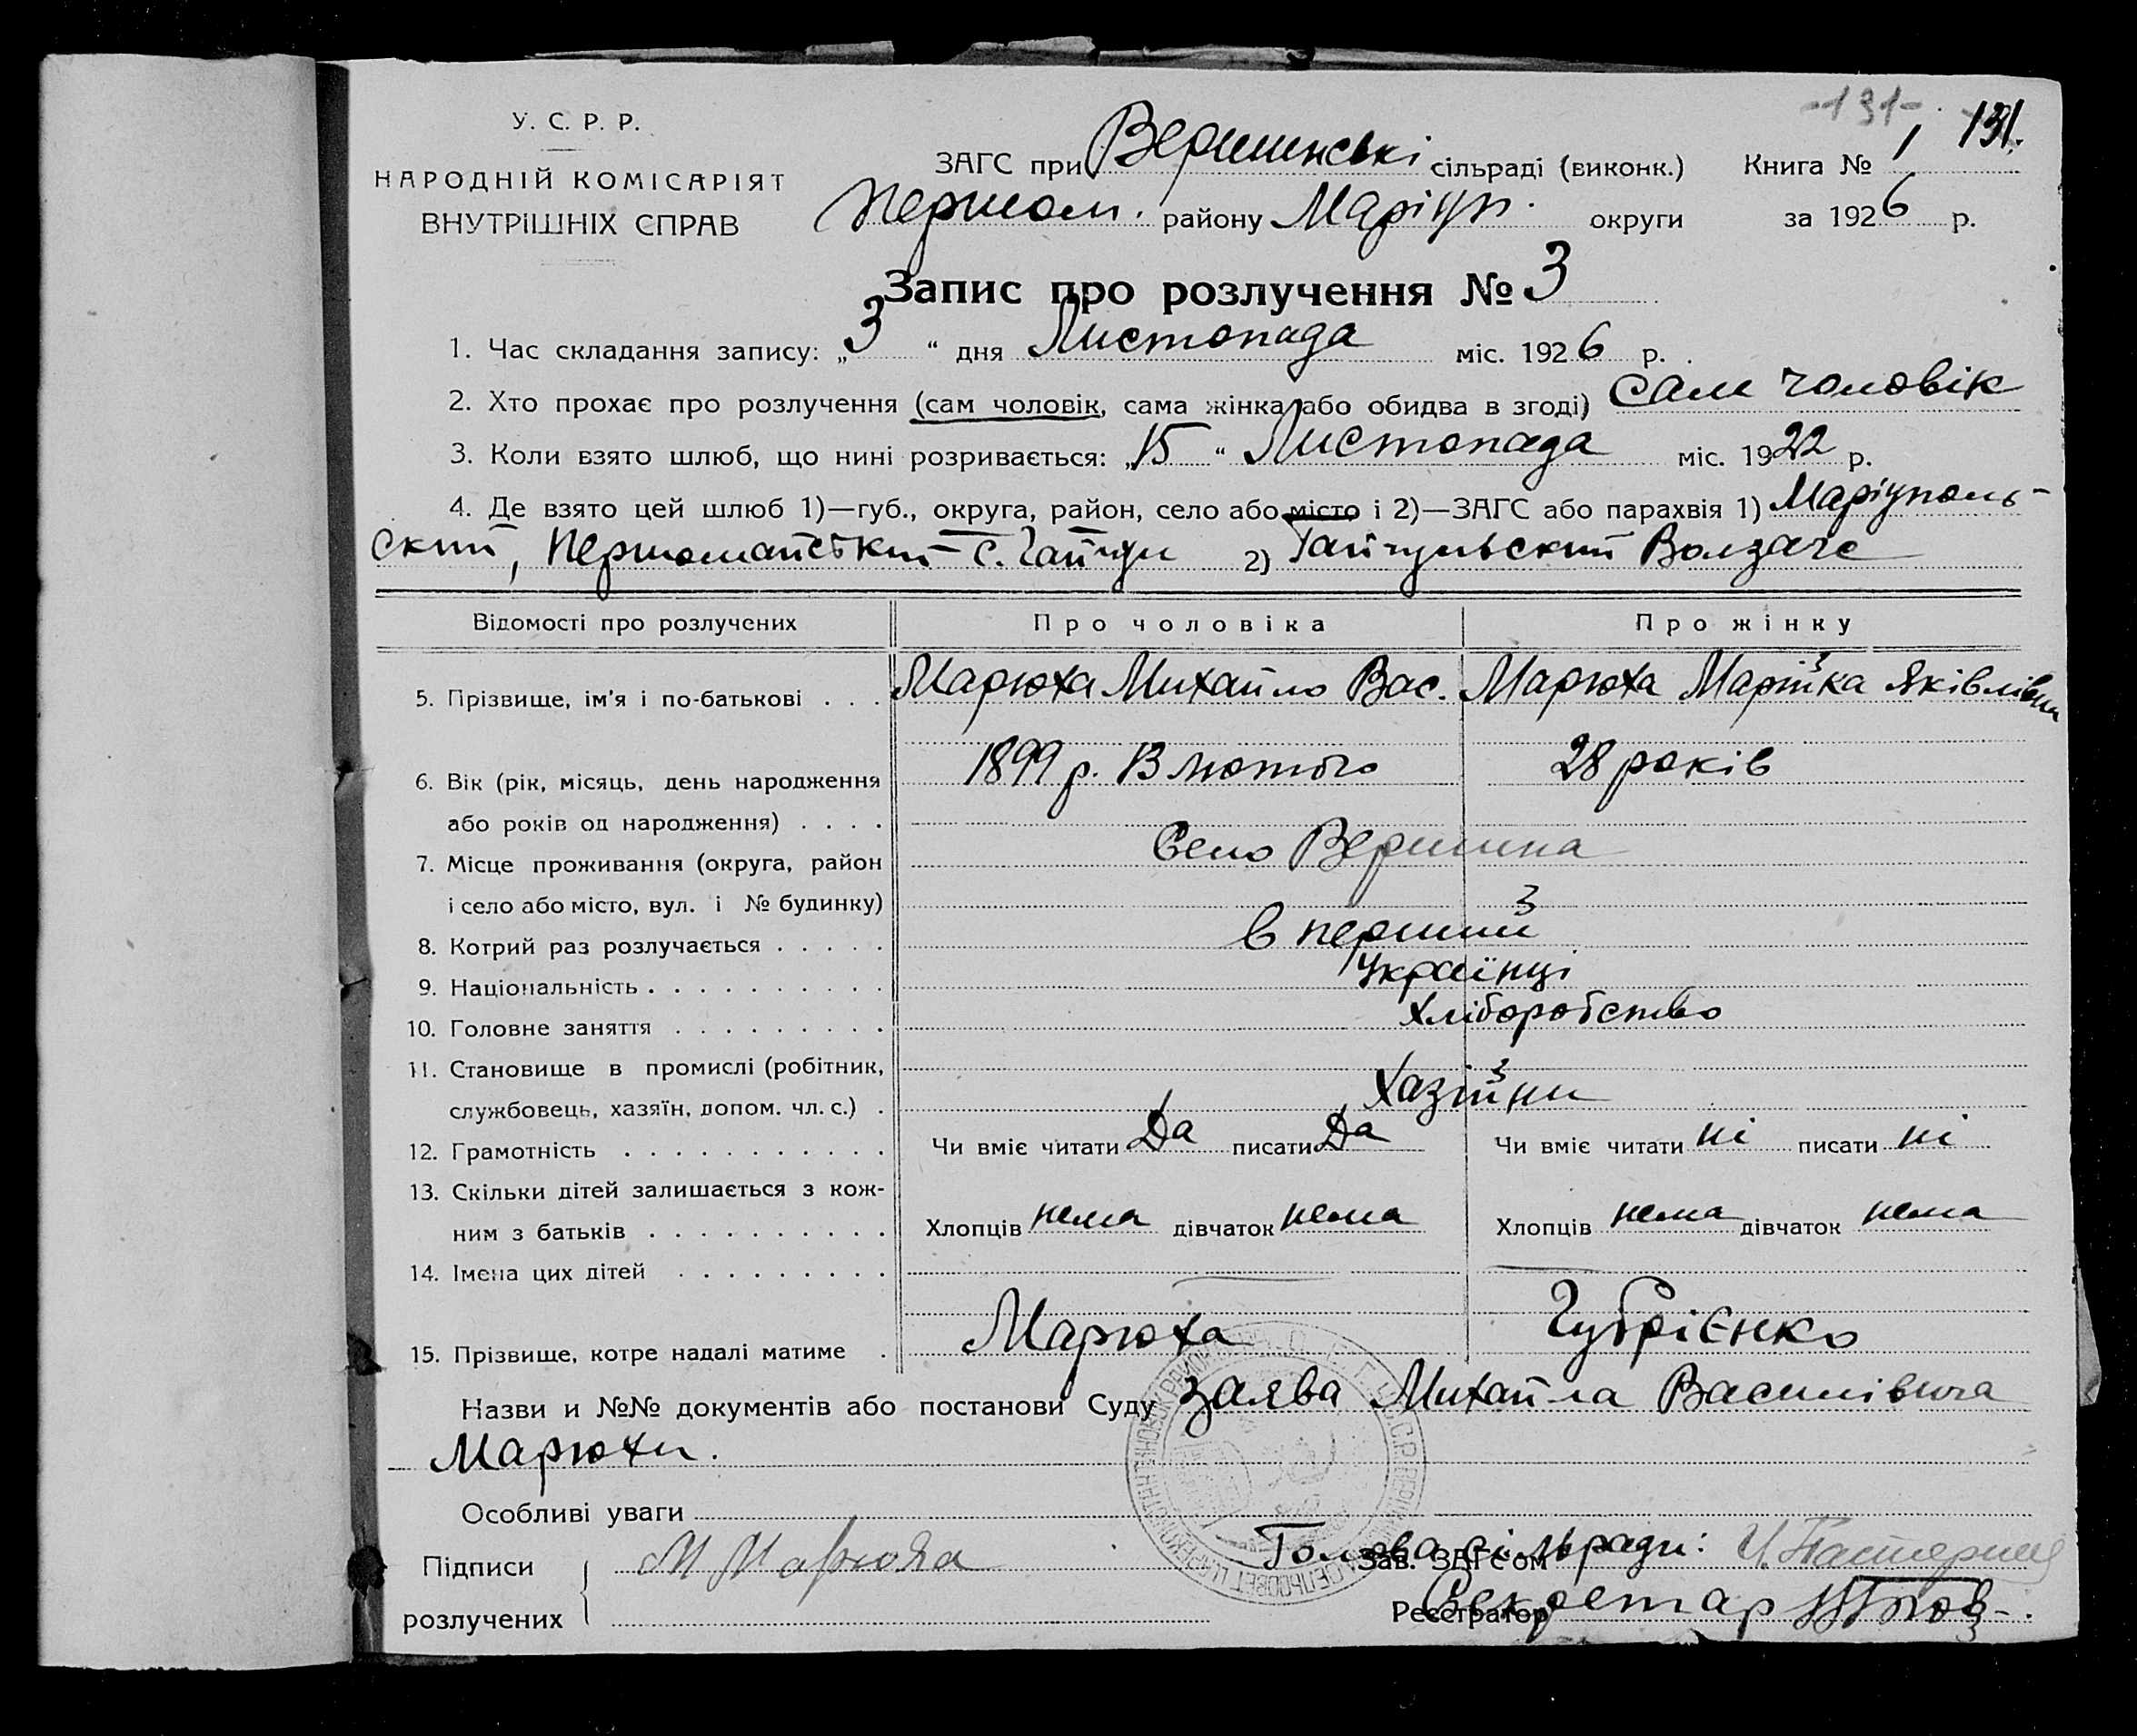 -131- 131.
У. С. Р. Р.
НАРОДНІЙ КОМІСАРІЯТ
ВНУТРІШНІХ СПРАВ
ЗАГС при Вершинські сільраді (виконк.) Книга № 1
Першом. району Маріуп. округи за 1926 р.
Запис про розлучення № 3
1. Час складання запису: „3“ дня Листопада міс. 1926 р.
2. Хто прохає про розлучення (сам чоловік, сама жінка або обидва в згоді) сам чоловік
3. Коли взято шлюб, що нині розривається: „15“ Листопада міс. 1922 р.
4. Де взято цей шлюб 1)—губ., округа, район, село або місто і 2)—ЗАГС або парахвія 1) Маріуполь-
ский, Першомайський с. Гайчул 2) Гайчульский Волзагс
Відомості про розлучених Про чоловіка Про жінку
5. Прізвище, ім'я і по-батькові . . . Марюха Михайло Вас. Марюха Марійка Яківлівна
6. Вік (рік, місяць, день народження 1899 р. 13 лютого 28 років
або років од народження) . . . .
7. Місце проживання (округа, район Село Вершина
і село або місто, вул. і № будинку)
8. Котрий раз розлучається . . . . . в перший
9. Національність . . . . . . . . . . Українці
10. Головне заняття . . . . . . . . . Хліборобство
11. Становище в промислі (робітник,
службовець, хазяїн, допом. чл. с.) . Хазійни
12. Грамотність . . . . . . . . . . . Чи вміє читати Да писати Да Чи вміє читати ні писати ні
13. Скільки дітей залишається з кож-
ним з батьків . . . . . . . . . . Хлопців нема дівчаток нема Хлопців нема дівчаток нема
14. Імена цих дітей . . . . . . . . .
15. Прізвище, котре надалі матиме . Марюха Губрієнко
Назви и №№ документів або постанови Суду заява Михайла Василівича
Марюхи.
Особливі уваги
Підписи М Марюха Зав. ЗАГС'ом Голова сільради:
розлучених Реєстратор Секретар